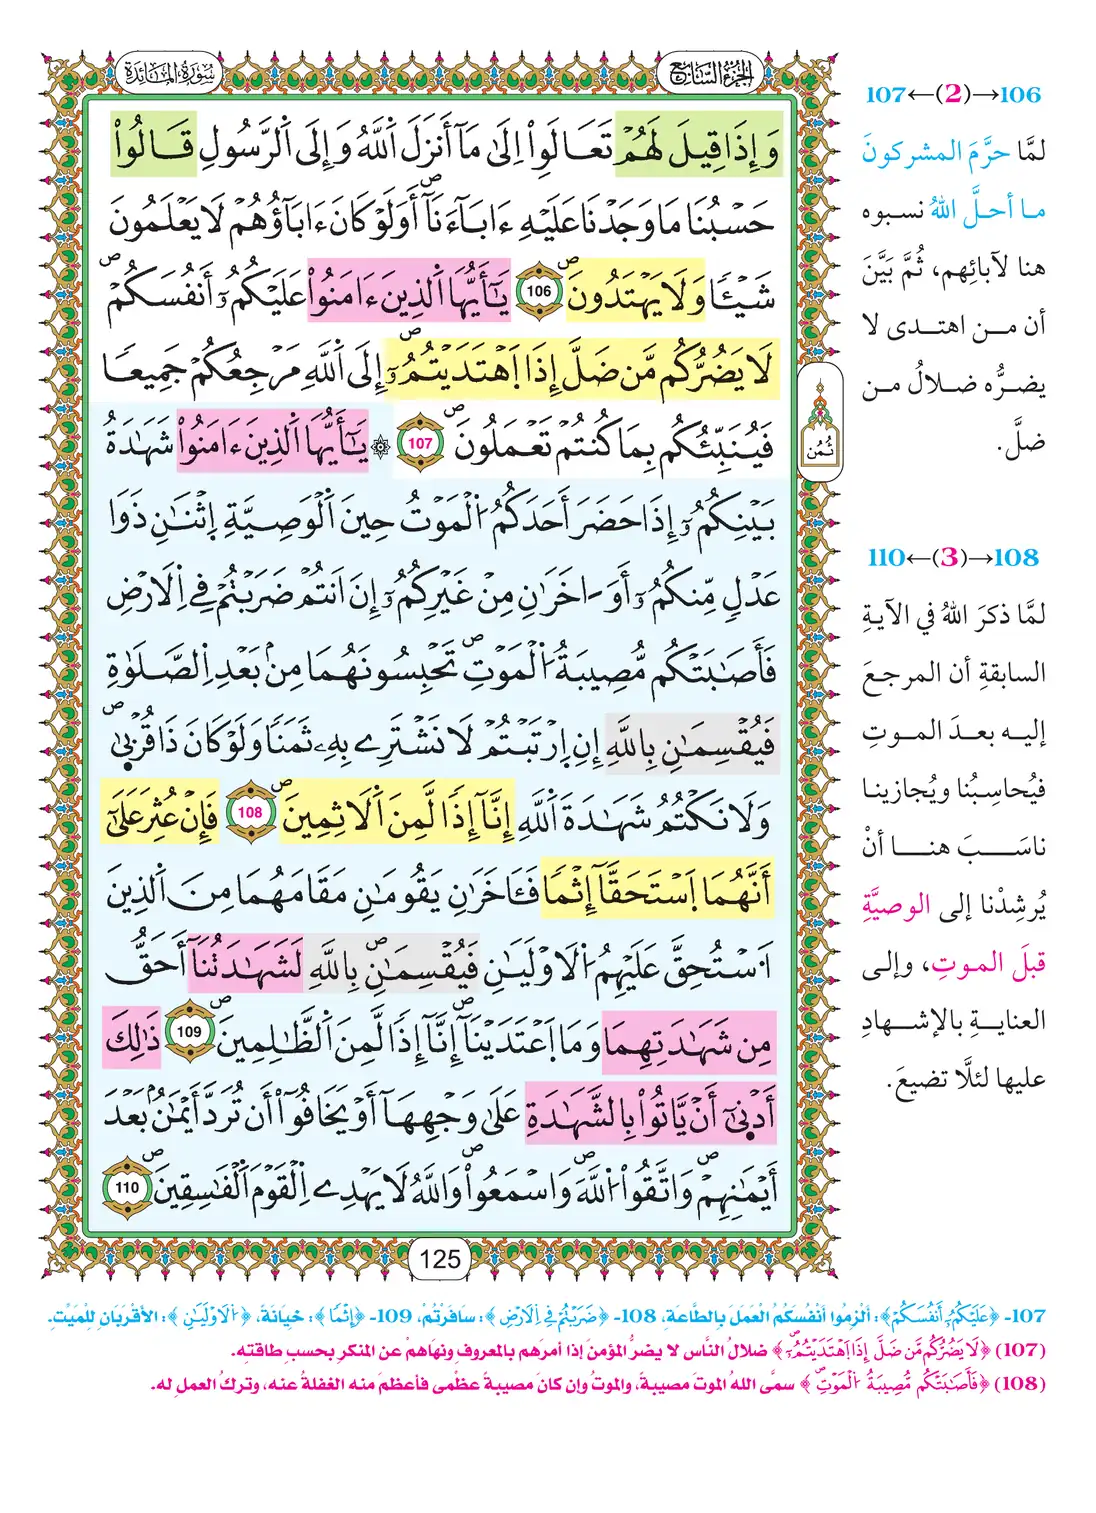 الجزء السابع
سورة المائدة
وَإِذَا قِيلَ لَهُمْ تَعَالَوِاْ اِلَىٰ مَآ أَنزَلَ اَ۬للَّهُ وَإِلَى اَ۬لرَّسُولِ قَالُواْ
حَسْبُنَا مَا وَجَدْنَا عَلَيْهِ ءَابَآءَنَآ أَوَلَوْ كَانَ ءَابَآؤُهُمْ لَا يَعْلَمُونَ
شَيْـٔٗا وَلَا يَهْتَدُونَ 106 يَـٰٓأَيُّهَا اَ۬لذِينَ ءَامَنُواْ عَلَيْكُمُۥٓ أَنفُسَكُمْ
لَا يَضُرُّكُم مَّن ضَلَّ إِذَا اَ۪هْتَدَيْتُمُۥٓ إِلَى اَ۬للَّهِ مَرْجِعُكُمْ جَمِيعٗا
فَيُنَبِّئُكُم بِمَا كُنتُمْ تَعْمَلُونَ 107 ۞ يَـٰٓأَيُّهَا اَ۬لذِينَ ءَامَنُواْ شَهَٰدَةُ
بَيْنِكُمُۥٓ إِذَا حَضَرَ أَحَدَكُمُ اُ۬لْمَوْتُ حِينَ اَ۬لْوَصِيَّةِ اِ۪ثْنَٰنِ ذَوَا
عَدْلٖ مِّنكُمُۥٓ أَوَ اٰخَرَٰنِ مِنْ غَيْرِكُمُۥٓ إِنَ اَنتُمْ ضَرَبْتُمْ فِے اِ۬لَارْضِ
فَأَصَٰبَتْكُم مُّصِيبَةُ اُ۬لْمَوْتِ تَحْبِسُونَهُمَا مِنۢ بَعْدِ اِ۬لصَّلَوٰةِ
فَيُقْسِمَٰنِ بِاللَّهِ إِنِ اِ۪رْتَبْتُمْ لَا نَشْتَرِے بِهِۦ ثَمَنٗا وَلَوْ كَانَ ذَا قُرْبَىٰ
وَلَا نَكْتُمُ شَهَٰدَةَ اَ۬للَّهِ إِنَّآ إِذٗا لَّمِنَ اَ۬لَاثِمِينَ 108 فَإِنْ عُثِرَ عَلَىٰٓ
أَنَّهُمَا اَ۪سْتَحَقَّآ إِثْمٗا فَـَٔاخَرَٰنِ يَقُومَٰنِ مَقَامَهُمَا مِنَ اَ۬لذِينَ
اَ۟سْتُحِقَّ عَلَيْهِمُ اُ۬لَاوْلَيَٰنِ فَيُقْسِمَٰنِ بِاللَّهِ لَشَهَٰدَتُنَآ أَحَقُّ
مِن شَهَٰدَتِهِمَا وَمَا اَ۪عْتَدَيْنَآ إِنَّآ إِذٗا لَّمِنَ اَ۬لظَّٰلِمِينَ 109 ذَٰلِكَ
أَدْنَىٰٓ أَنْ يَّاتُواْ بِالشَّهَٰدَةِ عَلَىٰ وَجْهِهَآ أَوْ يَخَافُوٓاْ أَن تُرَدَّ أَيْمَٰنُۢ بَعْدَ
أَيْمَٰنِهِمْ وَاتَّقُواْ اُ۬للَّهَ وَاسْمَعُواْ وَاللَّهُ لَا يَهْدِے اِ۬لْقَوْمَ اَ۬لْفَٰسِقِينَ 110
ثمن
125
106→(2)←107
لمَّا حرَّمَ المشركونَ
ما أحلَّ اللهُ نسبوه
هنا لآبائِهم، ثُمَّ بَيَّنَ
أن من اهتدى لا
يضرُّه ضلالُ من
ضلَّ.
108→(3)←110
لمَّا ذكرَ اللهُ في الآيةِ
السابقةِ أن المرجعَ
إليه بعدَ الموتِ
فيُحاسِبُنا ويُجازينا
ناسَبَ هنا أنْ
يُرشِدْنا إلى الوصيَّةِ
قبلَ الموتِ، وإلى
العنايةِ بالإشهادِ
عليها لئلَّا تضيعَ.
107- ﴿عَلَيْكُمُۥٓ أَنفُسَكُمْ﴾: ألزِمُوا أنْفُسكُمُ العَمَلَ بِالطَّاعَةِ، 108- ﴿ضَرَبْتُمْ فِے اِ۬لَارْضِ﴾: سَافَرْتُمْ، 109- ﴿إِثْمٗا﴾: خِيَانَةً، ﴿اُ۬لَاوْلَيَٰنِ﴾: الأقْرَبَانِ لِلْمَيِّتِ.
(107) ﴿لَا يَضُرُّكُم مَّن ضَلَّ إِذَا اَ۪هْتَدَيْتُمُۥٓ﴾ ضلالُ النَّاس لا يضرُّ المؤمنَ إذا أمرهم بالمعروفِ ونهاهم عن المنكرِ بحسبِ طاقتِه.
(108) ﴿فَأَصَٰبَتْكُم مُّصِيبَةُ اُ۬لْمَوْتِ﴾ سمَّى اللهُ الموتَ مصيبةً، والموتُ وإن كانَ مصيبةً عظْمى فأعظمُ منه الغفلةُ عنه، وتركُ العملِ له.